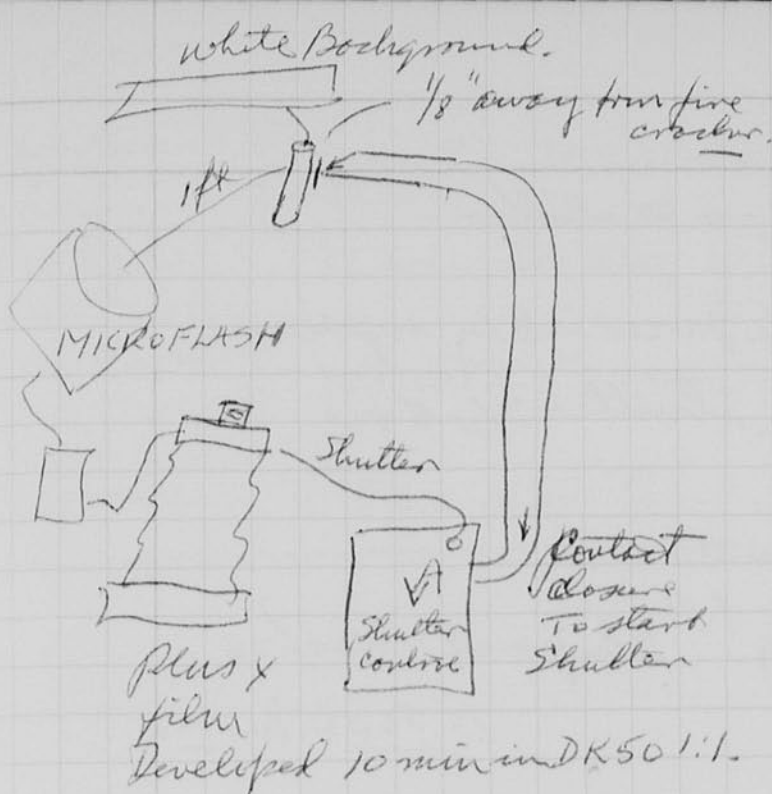 White Background.
1/8" away from fire
cracker.
1 ft
MICROFLASH
Shutter
Shutter
control
Contact
closure
To start
Shutter
Plus X
film
Developed 10 min in DK50 1:1.